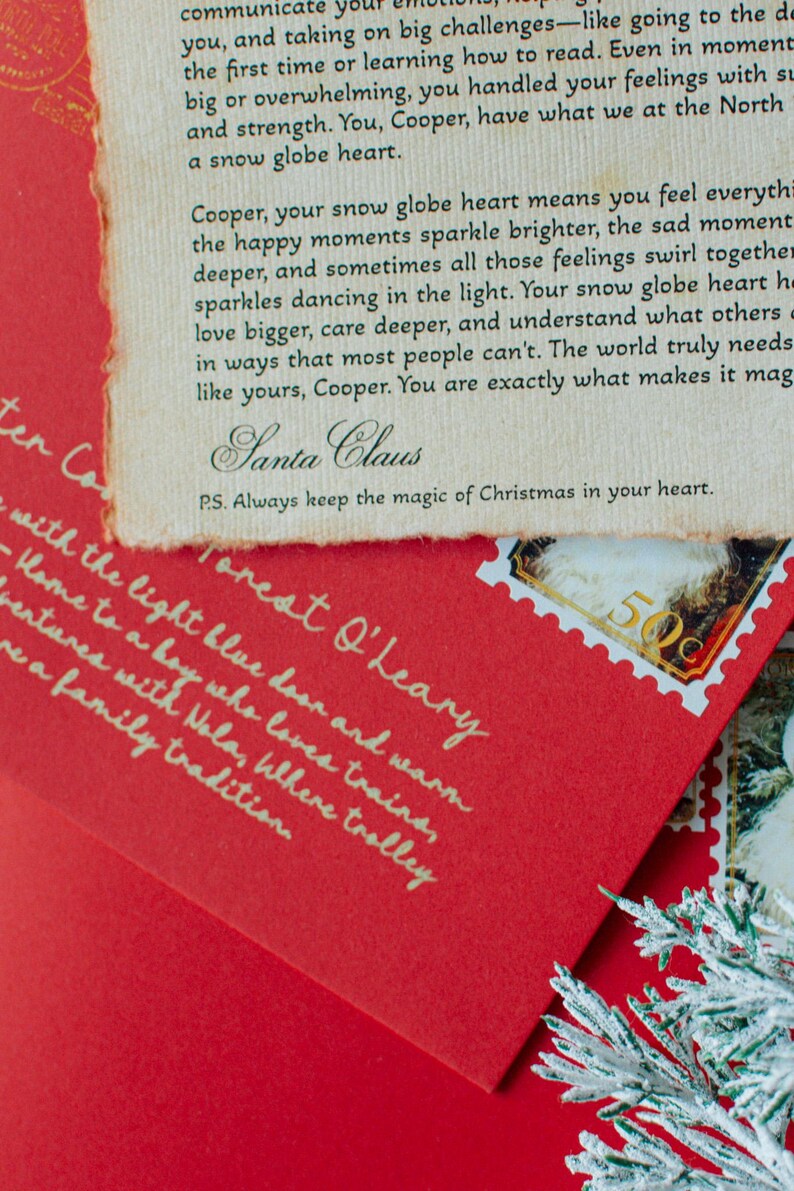 communicate your emotions,
you, and taking on big challenges—like going to the
the first time or learning how to read. Even in moment
big or overwhelming, you handled your feelings with
and strength. You, Cooper, have what we at the North
a snow globe heart.
Cooper, your snow globe heart means you feel everythi
the happy moments sparkle brighter, the sad moment
deeper, and sometimes all those feelings swirl together
sparkles dancing in the light. Your snow globe heart
love bigger, care deeper, and understand what others
in ways that most people can't. The world truly needs
like yours, Cooper. You are exactly what makes it mag
Santa Claus
P.S. Always keep the magic of Christmas in your heart.
ten Coo Forest O'Leary
with the light blue door and warm
— Home to a boy who loves trains,
adventures with Nola, Where trolley
re a family tradition.
50c